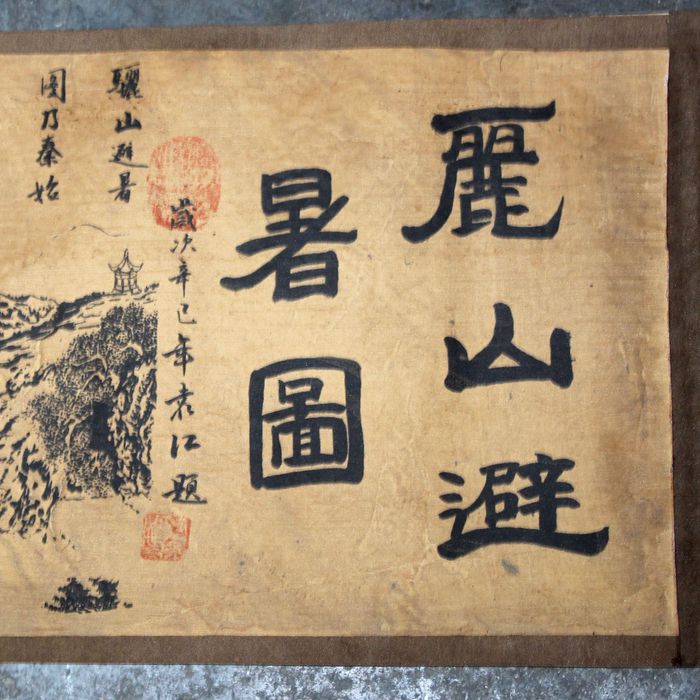 麗山避
暑圖
歲次辛巳年袁江題
驪山避暑
圖乃秦始